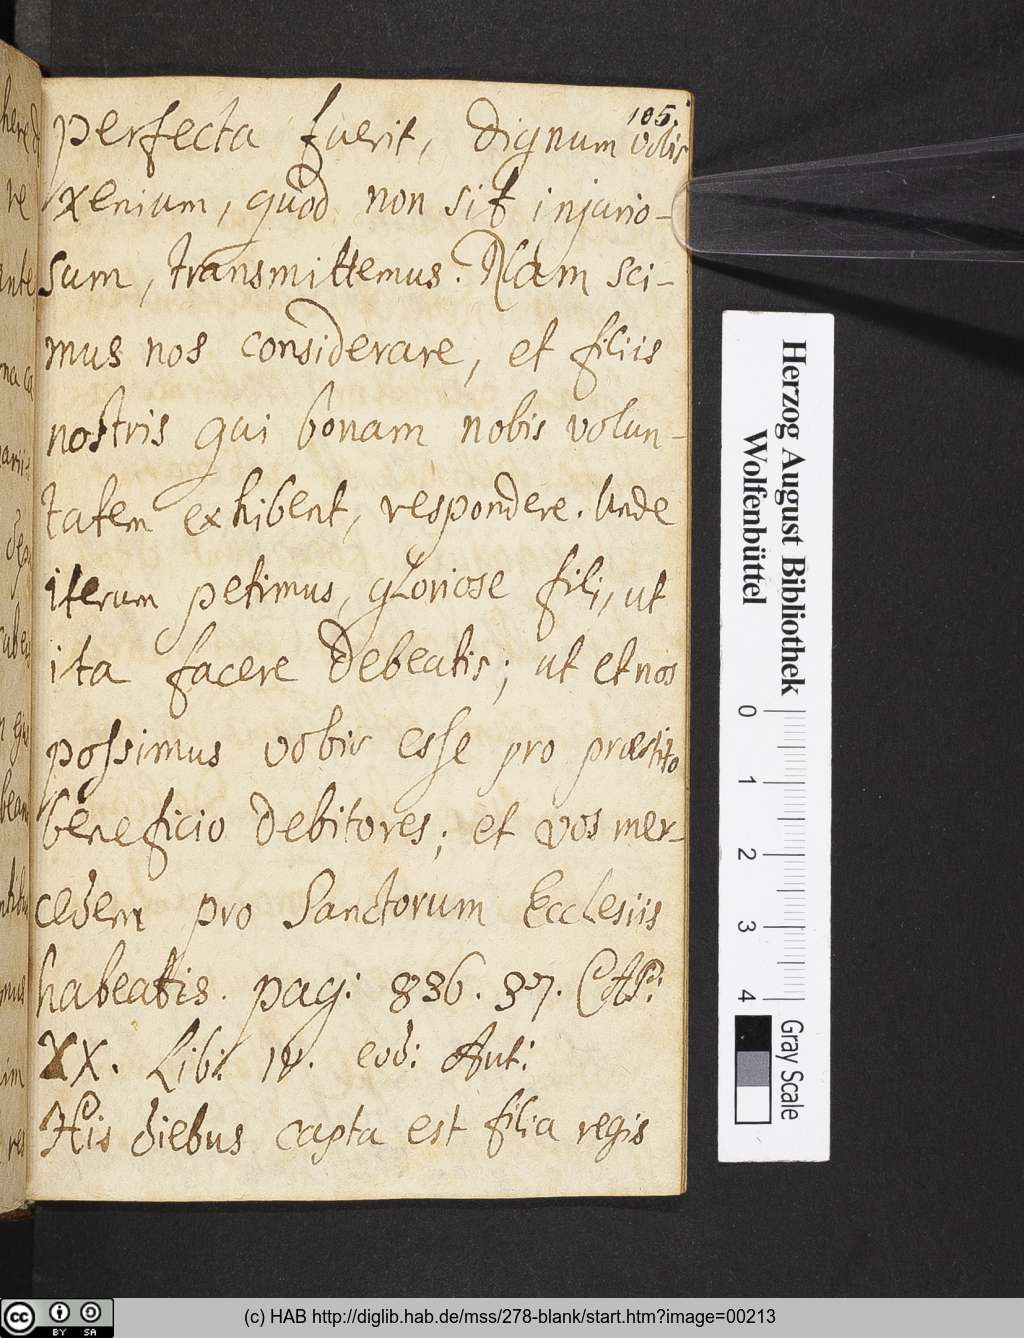 105.
perfecta fuerit, dignum vobis
xenium, quod non sit injurio-
sum, transmittemus. Nam sci-
mus nos considerare, et filiis
nostris qui bonam nobis volun-
tatem exhibent, respondere. Unde
iterum petimus, gloriose fili, ut
ita facere debeatis; ut et nos
possimus vobis esse pro præstito
beneficio debitores; et vos mer-
cedem pro Sanctorum Ecclesiis
habeatis. pag: 836. 37. CAP:
XX. Lib: IV. eod: Aut:
His diebus capta est filia regis
Herzog August Bibliothek
Wolfenbüttel
0 1 2 3 4
Gray Scale
cc BY SA
(c) HAB http://diglib.hab.de/mss/278-blank/start.htm?image=00213